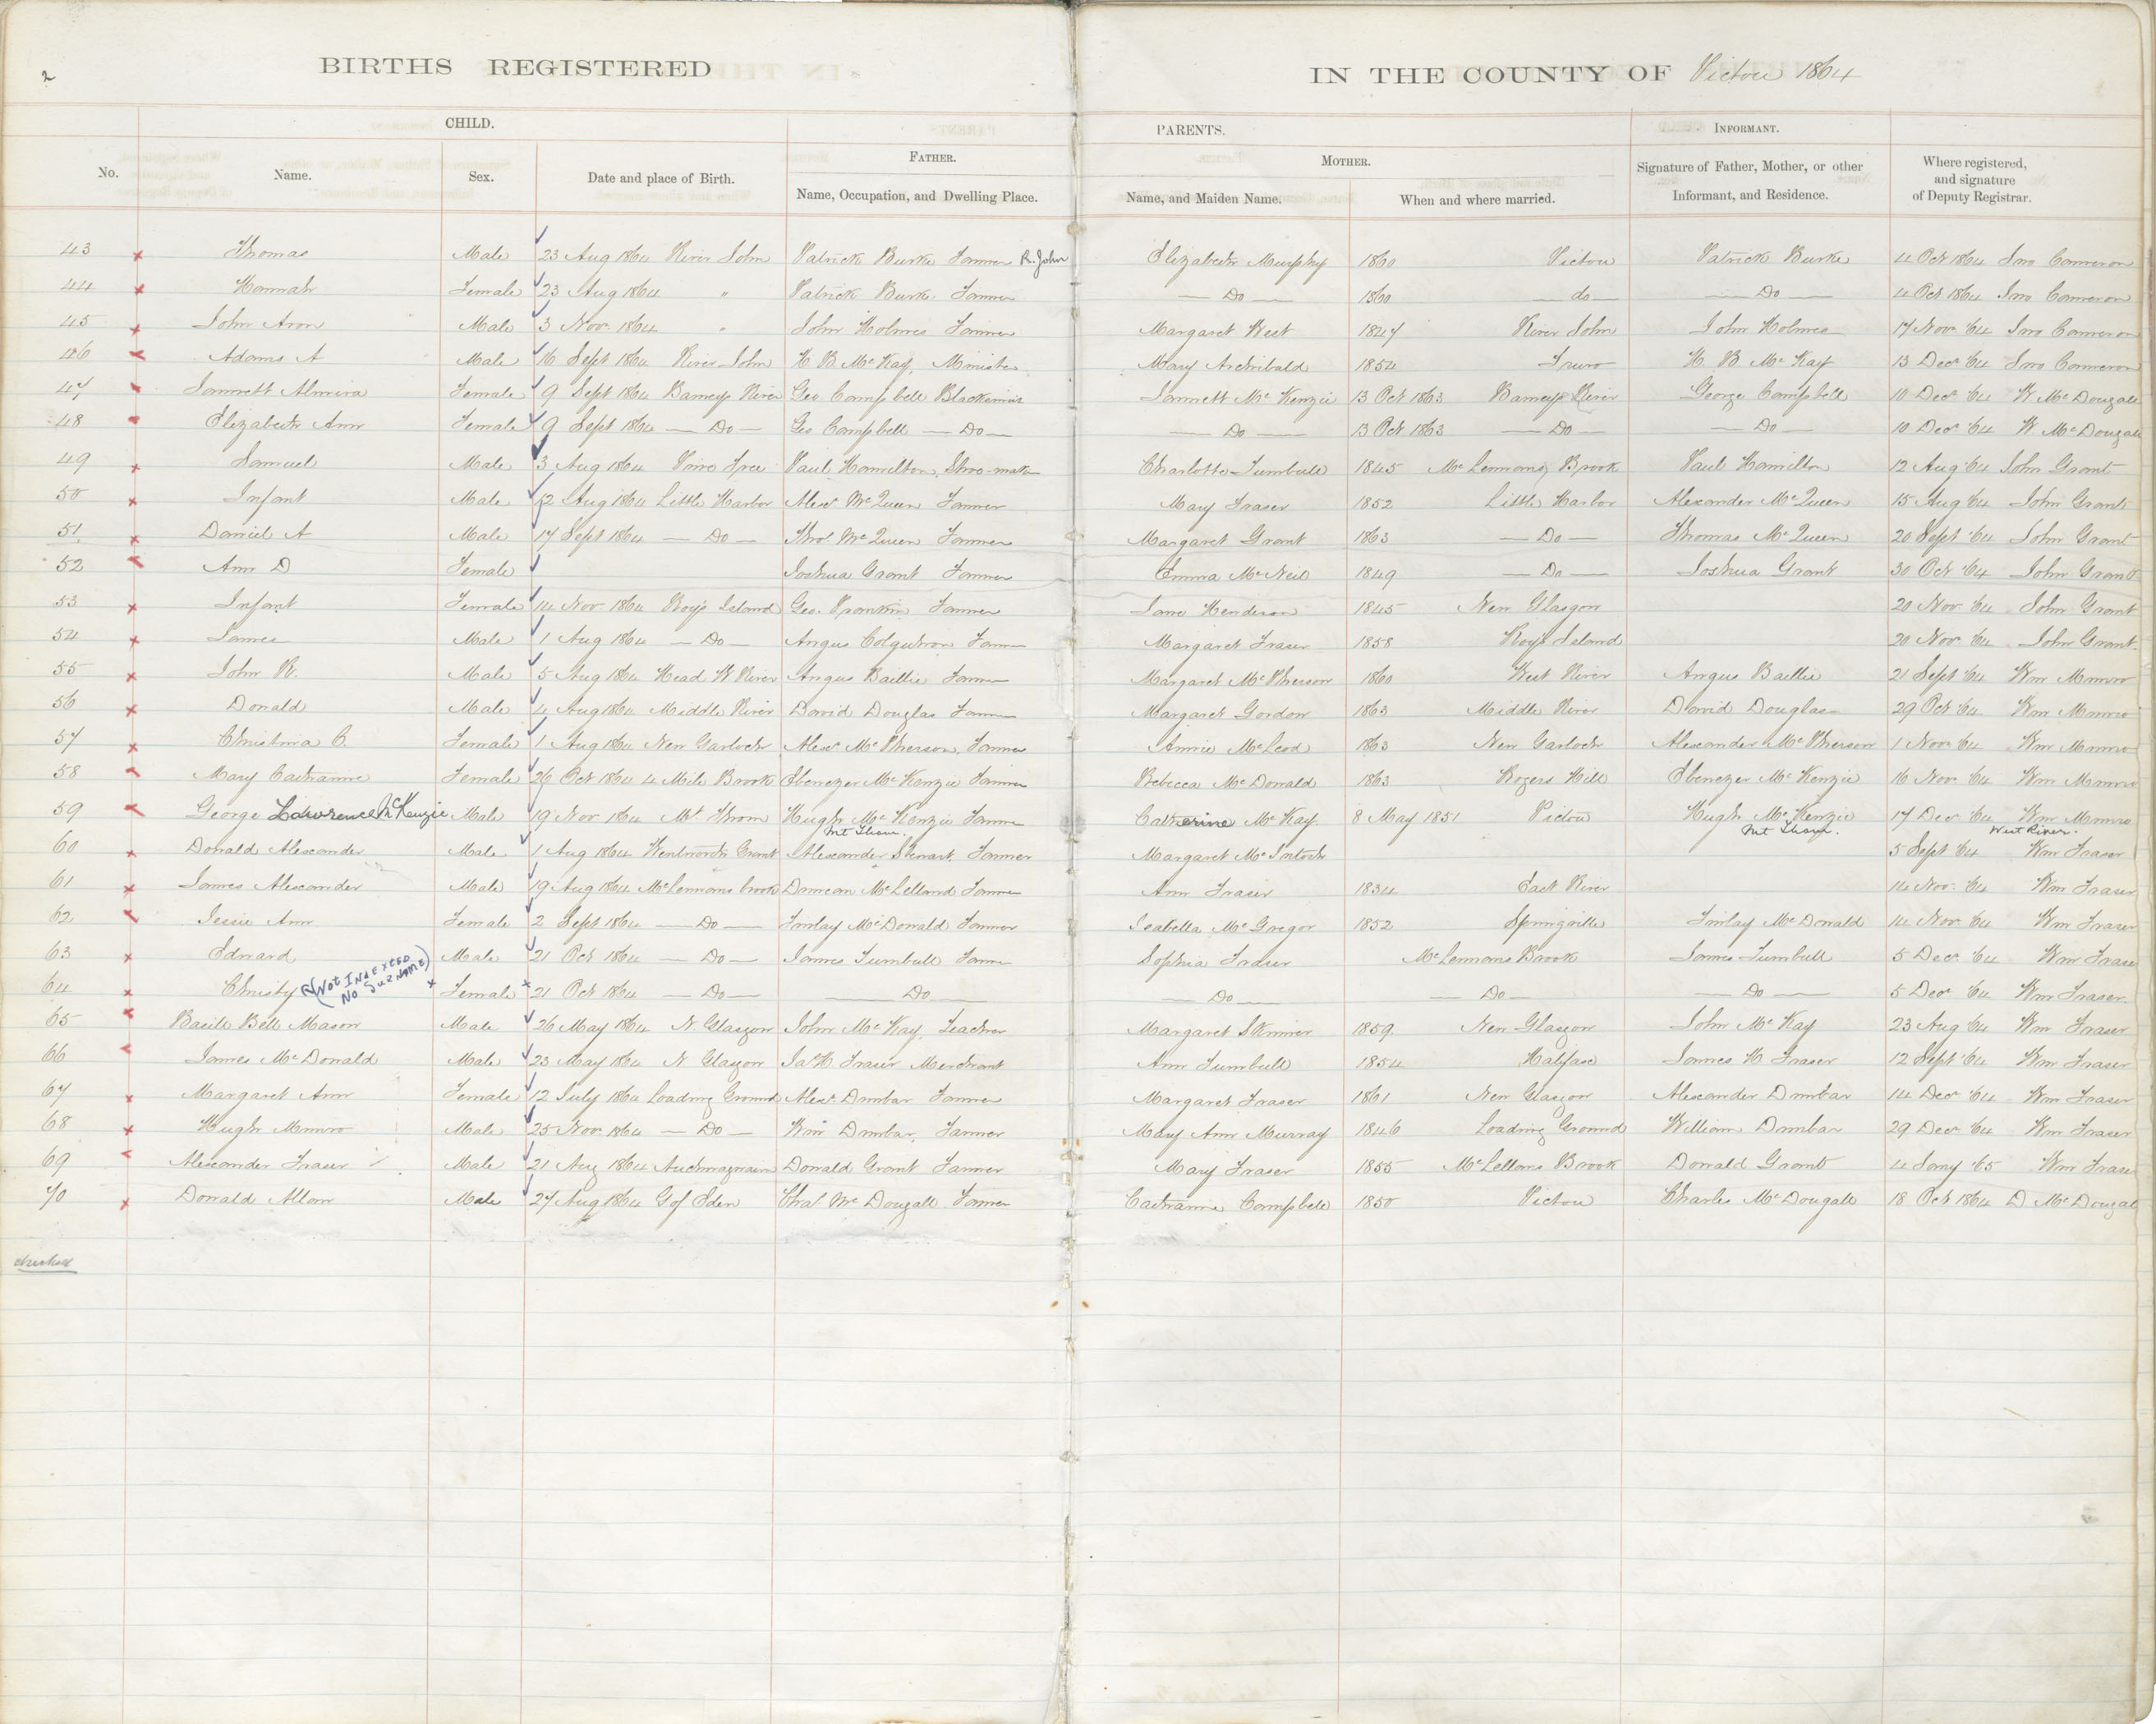 2
BIRTHS REGISTERED IN THE COUNTY OF Pictou 1864
CHILD. PARENTS. INFORMANT.
No. Name. Sex. Date and place of Birth. FATHER. Name, Occupation, and Dwelling Place. MOTHER. Name, and Maiden Name. When and where married. Signature of Father, Mother, or other Informant, and Residence. Where registered, and signature of Deputy Registrar.
43 Thomas Male 23 Aug 1864 River John Patrick Burke Farmer R. John Elizabeth Murphy 1860 Pictou Patrick Burke 4 Oct 1864 Jno Cameron
44 Hannah Female 23 Aug 1864 " Patrick Burke Farmer — Do — 1860 — do — — Do — 4 Oct 1864 Jno Cameron
45 John Aron Male 3 Nov. 1864 " John Holmes Farmer Margaret West 1847 River John John Holmes 17 Nov '64 Jno Cameron
46 Adams A Male 16 Sept 1864 River John H. B. McKay, Minister Mary Archibald 1854 Truro H. B. McKay 13 Dec '64 Jno Cameron
47 Jannett Almira Female 9 Sept 1864 Barneys River Geo Campbell Blacksmith Jannett McKenzie 13 Oct 1863 Barneys River George Campbell 10 Dec '64 W McDougall
48 Elizabeth Ann Female 9 Sept 1864 — Do — Geo Campbell — Do — — Do — 13 Oct 1863 — Do — — Do — 10 Dec '64 W. McDougall
49 Samuel Male 3 Aug 1864 Pine Tree Paul Hamilton, Shoe-maker Charlotte Turnbull 1845 McLennans Brook Paul Hamilton 12 Aug '64 John Grant
50 Infant Male 12 Aug 1864 Little Harbor Alexr McQueen Farmer Mary Fraser 1852 Little Harbor Alexander McQueen 15 Aug '64 John Grant
51 Daniel A Male 17 Sept 1864 — Do — Thos McQueen Farmer Margaret Grant 1863 — Do — Thomas McQueen 20 Sept '64 John Grant
52 Ann D Female Joshua Grant Farmer Emma McNeil 1849 — Do — Joshua Grant 30 Oct '64 John Grant
53 Infant Female 14 Nov. 1864 Roy's Island Geo. Farmer Jane Henderson 1845 New Glasgow 20 Nov '64 John Grant
54 James Male 1 Aug 1864 — Do — Angus Colquhoun Farmer Margaret Fraser 1858 Roys Island 20 Nov '64 John Grant
55 John R. Male 5 Aug 1864 Head W River Angus Baillie Farmer Margaret McPherson 1860 West River Angus Baillie 21 Sept '64 Wm Munro
56 Donald Male 4 Aug 1864 Middle River David Douglas Farmer Margaret Gordon 1863 Middle River David Douglas 29 Oct '64 Wm Munro
57 Christina C. Female 1 Aug 1864 New Garloch Alexr McPherson, Farmer Annie McLeod 1863 New Garloch Alexander McPherson 1 Nov '64 Wm Munro
58 Mary Catharine Female 26 Oct 1864 4 Mile Brook Ebenezer McKenzie Farmer Rebecca McDonald 1863 Rogers Hill Ebenezer McKenzie 16 Nov '64 Wm Munro
59 George Lawrence McKenzie Male 19 Nov 1864 Mt Thom Hugh McKenzie Farmer Mt Thom. Catherine McKay 8 May 1851 Pictou Hugh McKenzie Mt Thom. 17 Dec '64 Wm Munro West River.
60 Donald Alexander Male 1 Aug 1864 Wentworth Grant Alexander Stewart, Farmer Margaret McIntosh 5 Sept '64 Wm Fraser
61 James Alexander Male 19 Aug 1864 McLennans brook Duncan McLelland Farmer Ann Fraser 1834 East River 14 Nov. '64 Wm Fraser
62 Jessie Ann Female 2 Sept 1864 — Do — Finlay McDonald Farmer Isabella McGregor 1852 Springville Finlay McDonald 14 Nov '64 Wm Fraser
63 Edward Male 21 Oct 1864 — Do — James Turnbull Farmer Sophia Fraser McLennans Brook James Turnbull 5 Dec '64 Wm Fraser
64 Christy (Not Indexed No Surname) Female 21 Oct 1864 — Do — — Do — — Do — — Do — — Do — 5 Dec '64 Wm Fraser
65 Basil Bell Mason Male 26 May 1864 N Glasgow John McKay, Teacher Margaret Skinner 1859 New Glasgow John McKay 23 Aug '64 Wm Fraser
66 James McDonald Male 23 May 1864 N Glasgow Jas H. Fraser Merchant Ann Turnbull 1854 Halifax James H Fraser 12 Sept '64 Wm Fraser
67 Margaret Ann Female 12 July 1864 Loading Ground Alexr Dunbar Farmer Margaret Fraser 1861 New Glasgow Alexander Dunbar 14 Dec '64 Wm Fraser
68 Hugh Munro Male 25 Nov. 1864 — Do — Wm Dunbar, Farmer Mary Ann Murray 1846 Loading Ground William Dunbar 29 Dec '64 Wm Fraser
69 Alexander Fraser Male 21 Aug 1864 Donald Grant Farmer Mary Fraser 1855 McLellans Brook Donald Grant 4 Jany '65 Wm Fraser
70 Donald Allan Male 27 Aug 1864 G of Eden Chas McDougall Farmer Catharine Campbell 1850 Pictou Charles McDougall 18 Oct 1864 D McDougall
checked